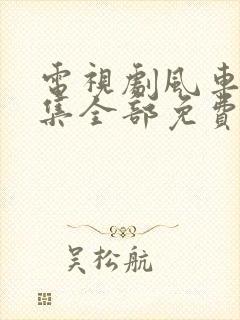 電視劇風車
集全部免費
吳松航